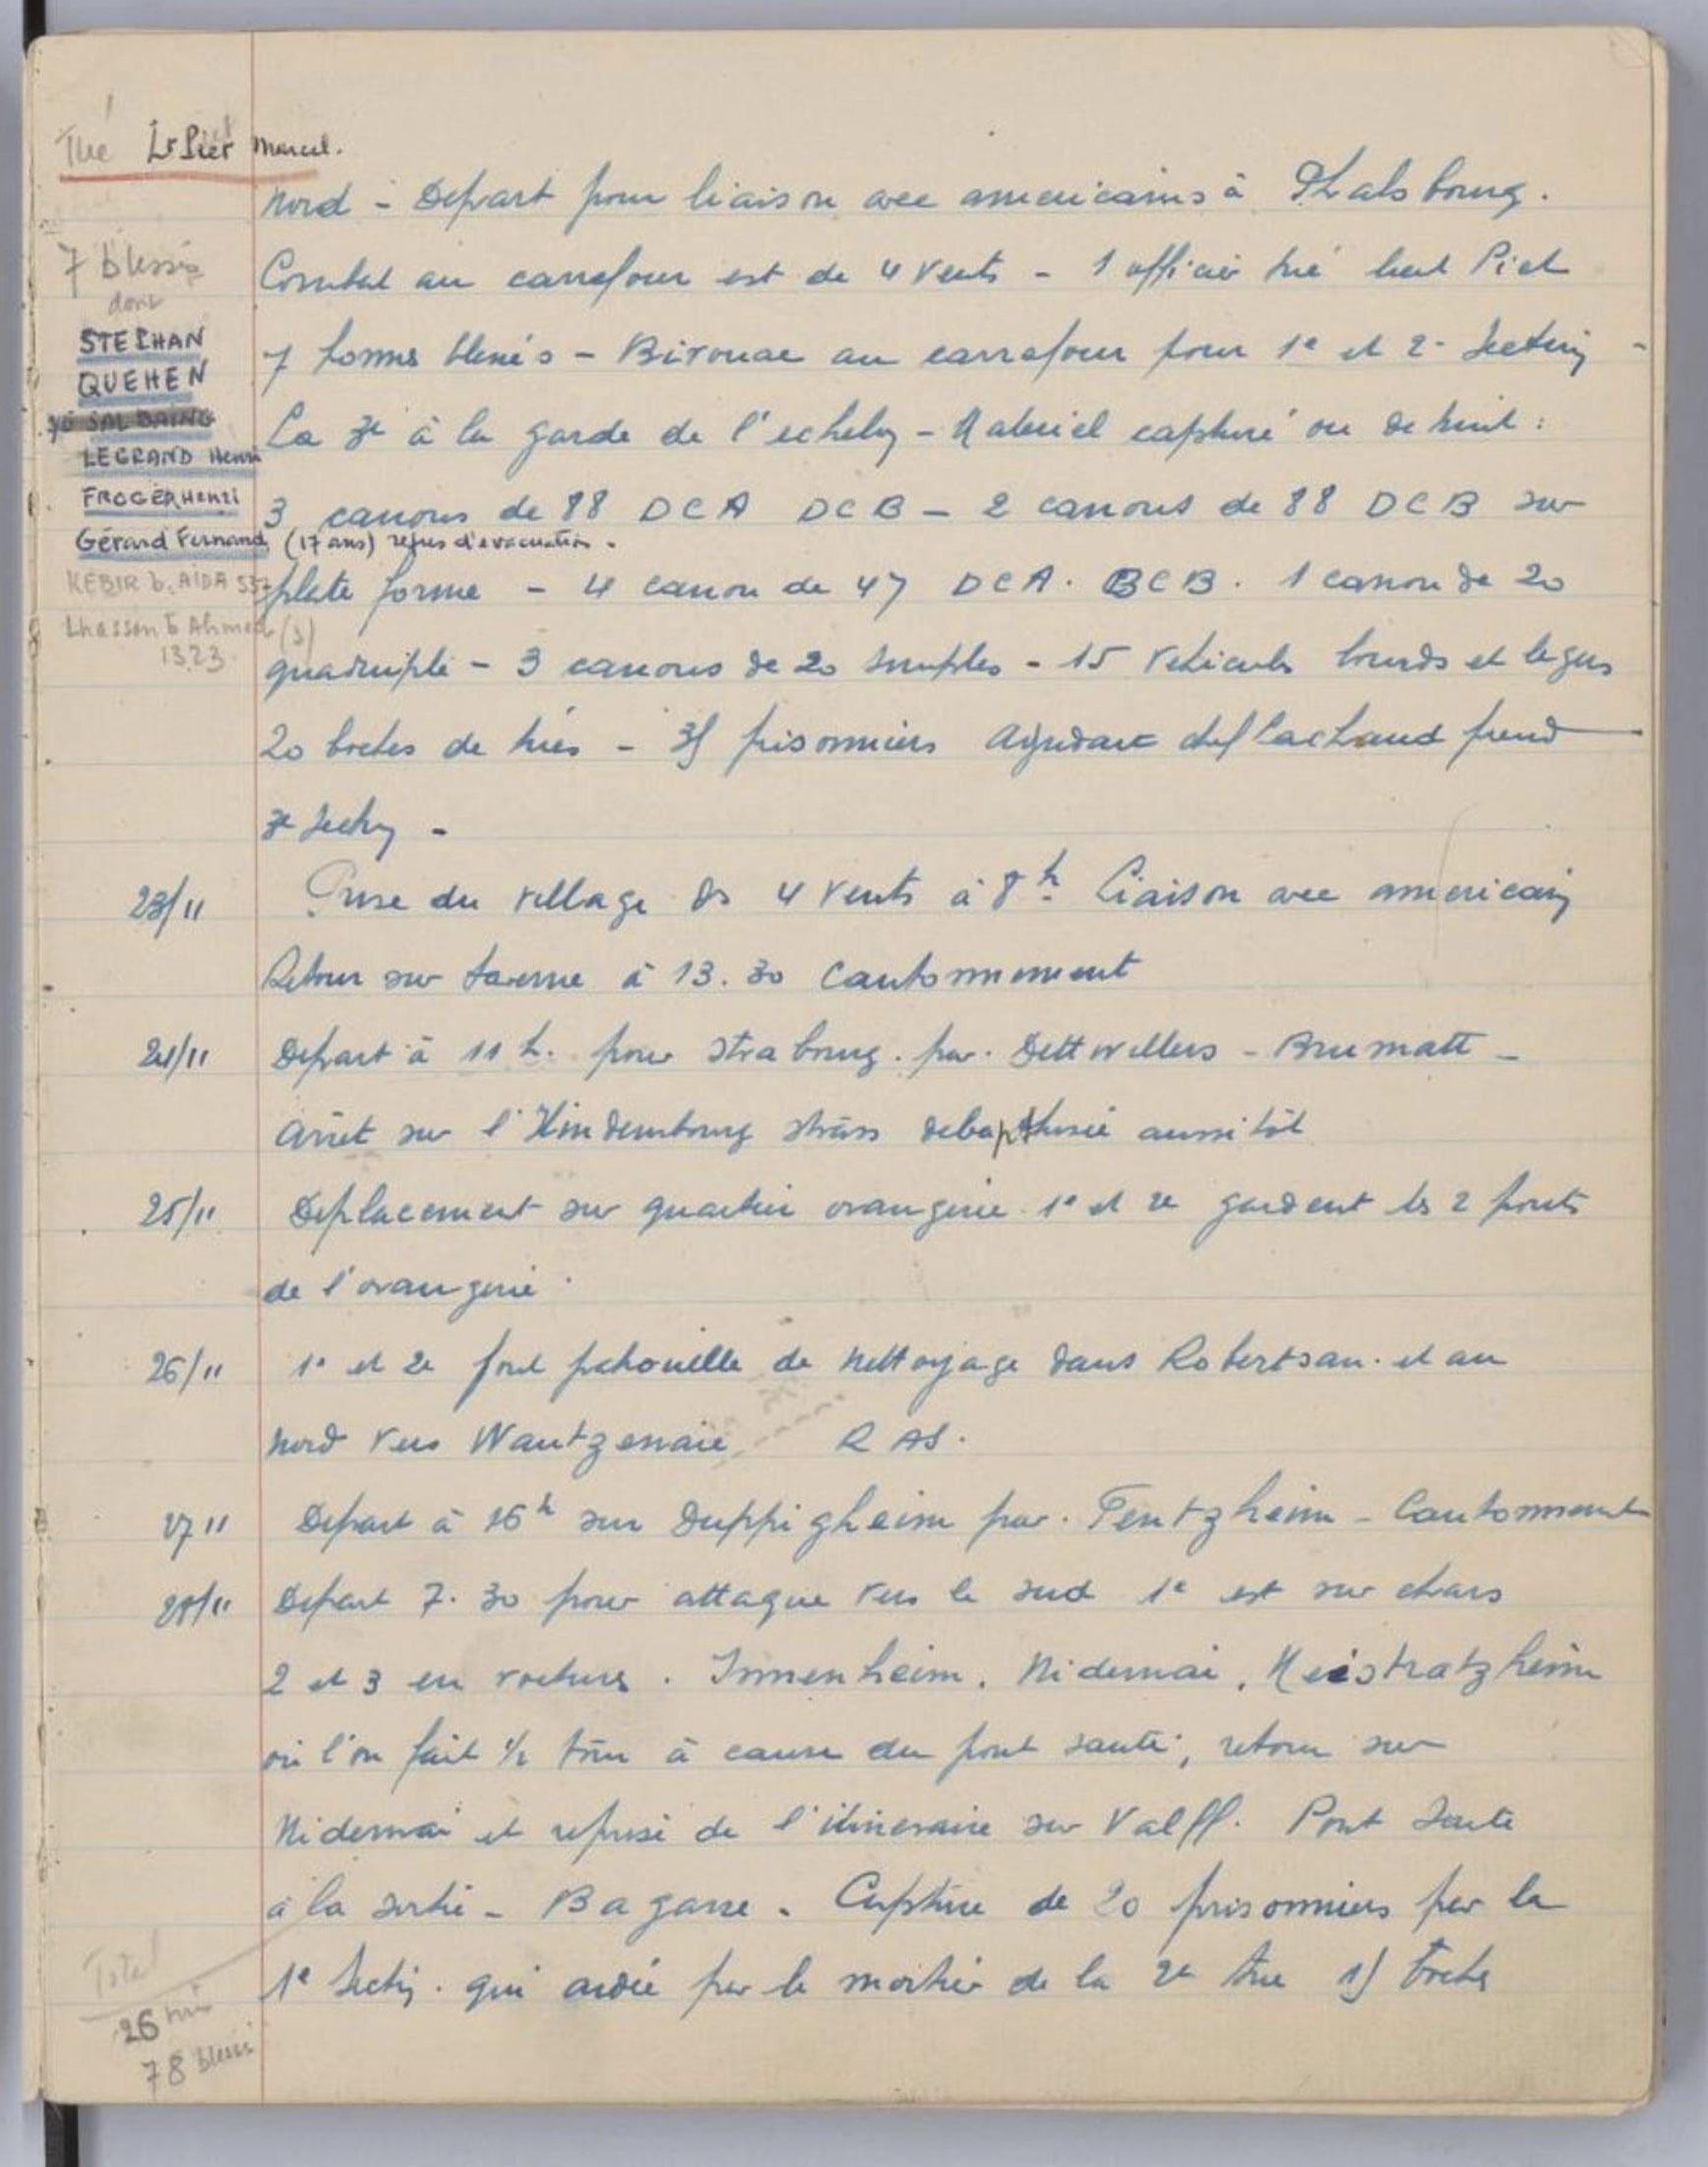 Tué Lt Piet Marcel.
nord - Depart pour liaison avec americains à Phalsbourg.
7 blessés
dont
Combat au carrefour est de 4 vents - 1 officier tué lieut Piet
STEPHAN
QUEHEN
7 hommes blessés - Bivouac au carrefour pour 1e et 2e Section -
SALDAING
LEGRAND Henri
La 3e à la garde de l'echelon - Materiel capturé ou detruit :
FROGER Henri
3 canons de 88 DCA DCB - 2 canons de 88 DCB sur
Gérard Fernand (17 ans) refus d'évacuation.
KEBIR b. AÏDA 537
plate forme - 4 canon de 47 DCA. BCB. 1 canon de 20
Lhassen b Ahmed (3)
1323
quadruplé - 3 canons de 20 simples - 15 vehicules lourds et legers
20 boches de tués - 35 prisonniers Adjudant chef Lachaud prend
3e Section -
23/11 Prise du village des 4 vents à 8h. Liaison avec americains
Retour sur Saverne à 13.30 Cantonnement
24/11 Depart à 11 h. pour Strabourg. par. Dettwillers - Brumatt -
Arrêt sur l'Hindembourg strass debapthisée aussitôt
25/11 Deplacement sur quartier orangerie 1e et 2e gardent les 2 ponts
de l'orangerie.
26/11 1e et 2e font patrouille de nettoyage dans Robertsau. et au
nord vers Wantzenaie RAS.
27 11 Depart à 16h sur Duppigheim par. Fentzheim - Cantonnement
28/11 Depart 7.30 pour attaque vers le sud 1e est sur chars
2 et 3 en voitures. Innenheim, Nidernai, Meistratzheim
où l'on fait 1/2 tour à cause du pont sauté, retour sur
Nidernai et reprise de l'itineraire sur Valff. Pont Sauté
à la sortie - Bagarre. Capture de 20 prisonniers par la
1e Section. qui aidée par le mortier de la 2e tue 15 boches
Total
26 tués
78 blessés